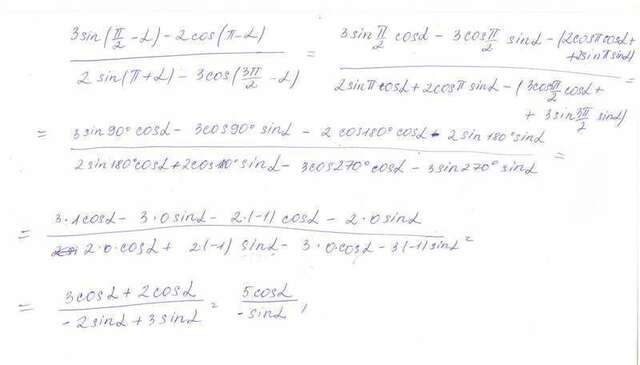 3sin(π/2 - α) - 2cos(π - α) / 2sin(π + α) - 3cos(3π/2 - α) = 3sin π/2 cosα - 3cos π/2 sinα - (2cosπ cosα + + 2sinπ sinα) / 2sinπ cosα + 2cosπ sinα - (3cos 3π/2 cosα + + 3sin 3π/2 sinα) =
= 3sin90° cosα - 3cos90° sinα - 2cos180° cosα - 2sin180° sinα / 2sin180° cosα + 2cos180° sinα - 3cos270° cosα - 3sin270° sinα =
= 3·1cosα - 3·0sinα - 2·(-1)cosα - 2·0sinα / 2·0·cosα + 2·(-1) sinα - 3·0·cosα - 3(-1)sinα =
= 3cosα + 2cosα / -2sinα + 3sinα = 5cosα / -sinα ,